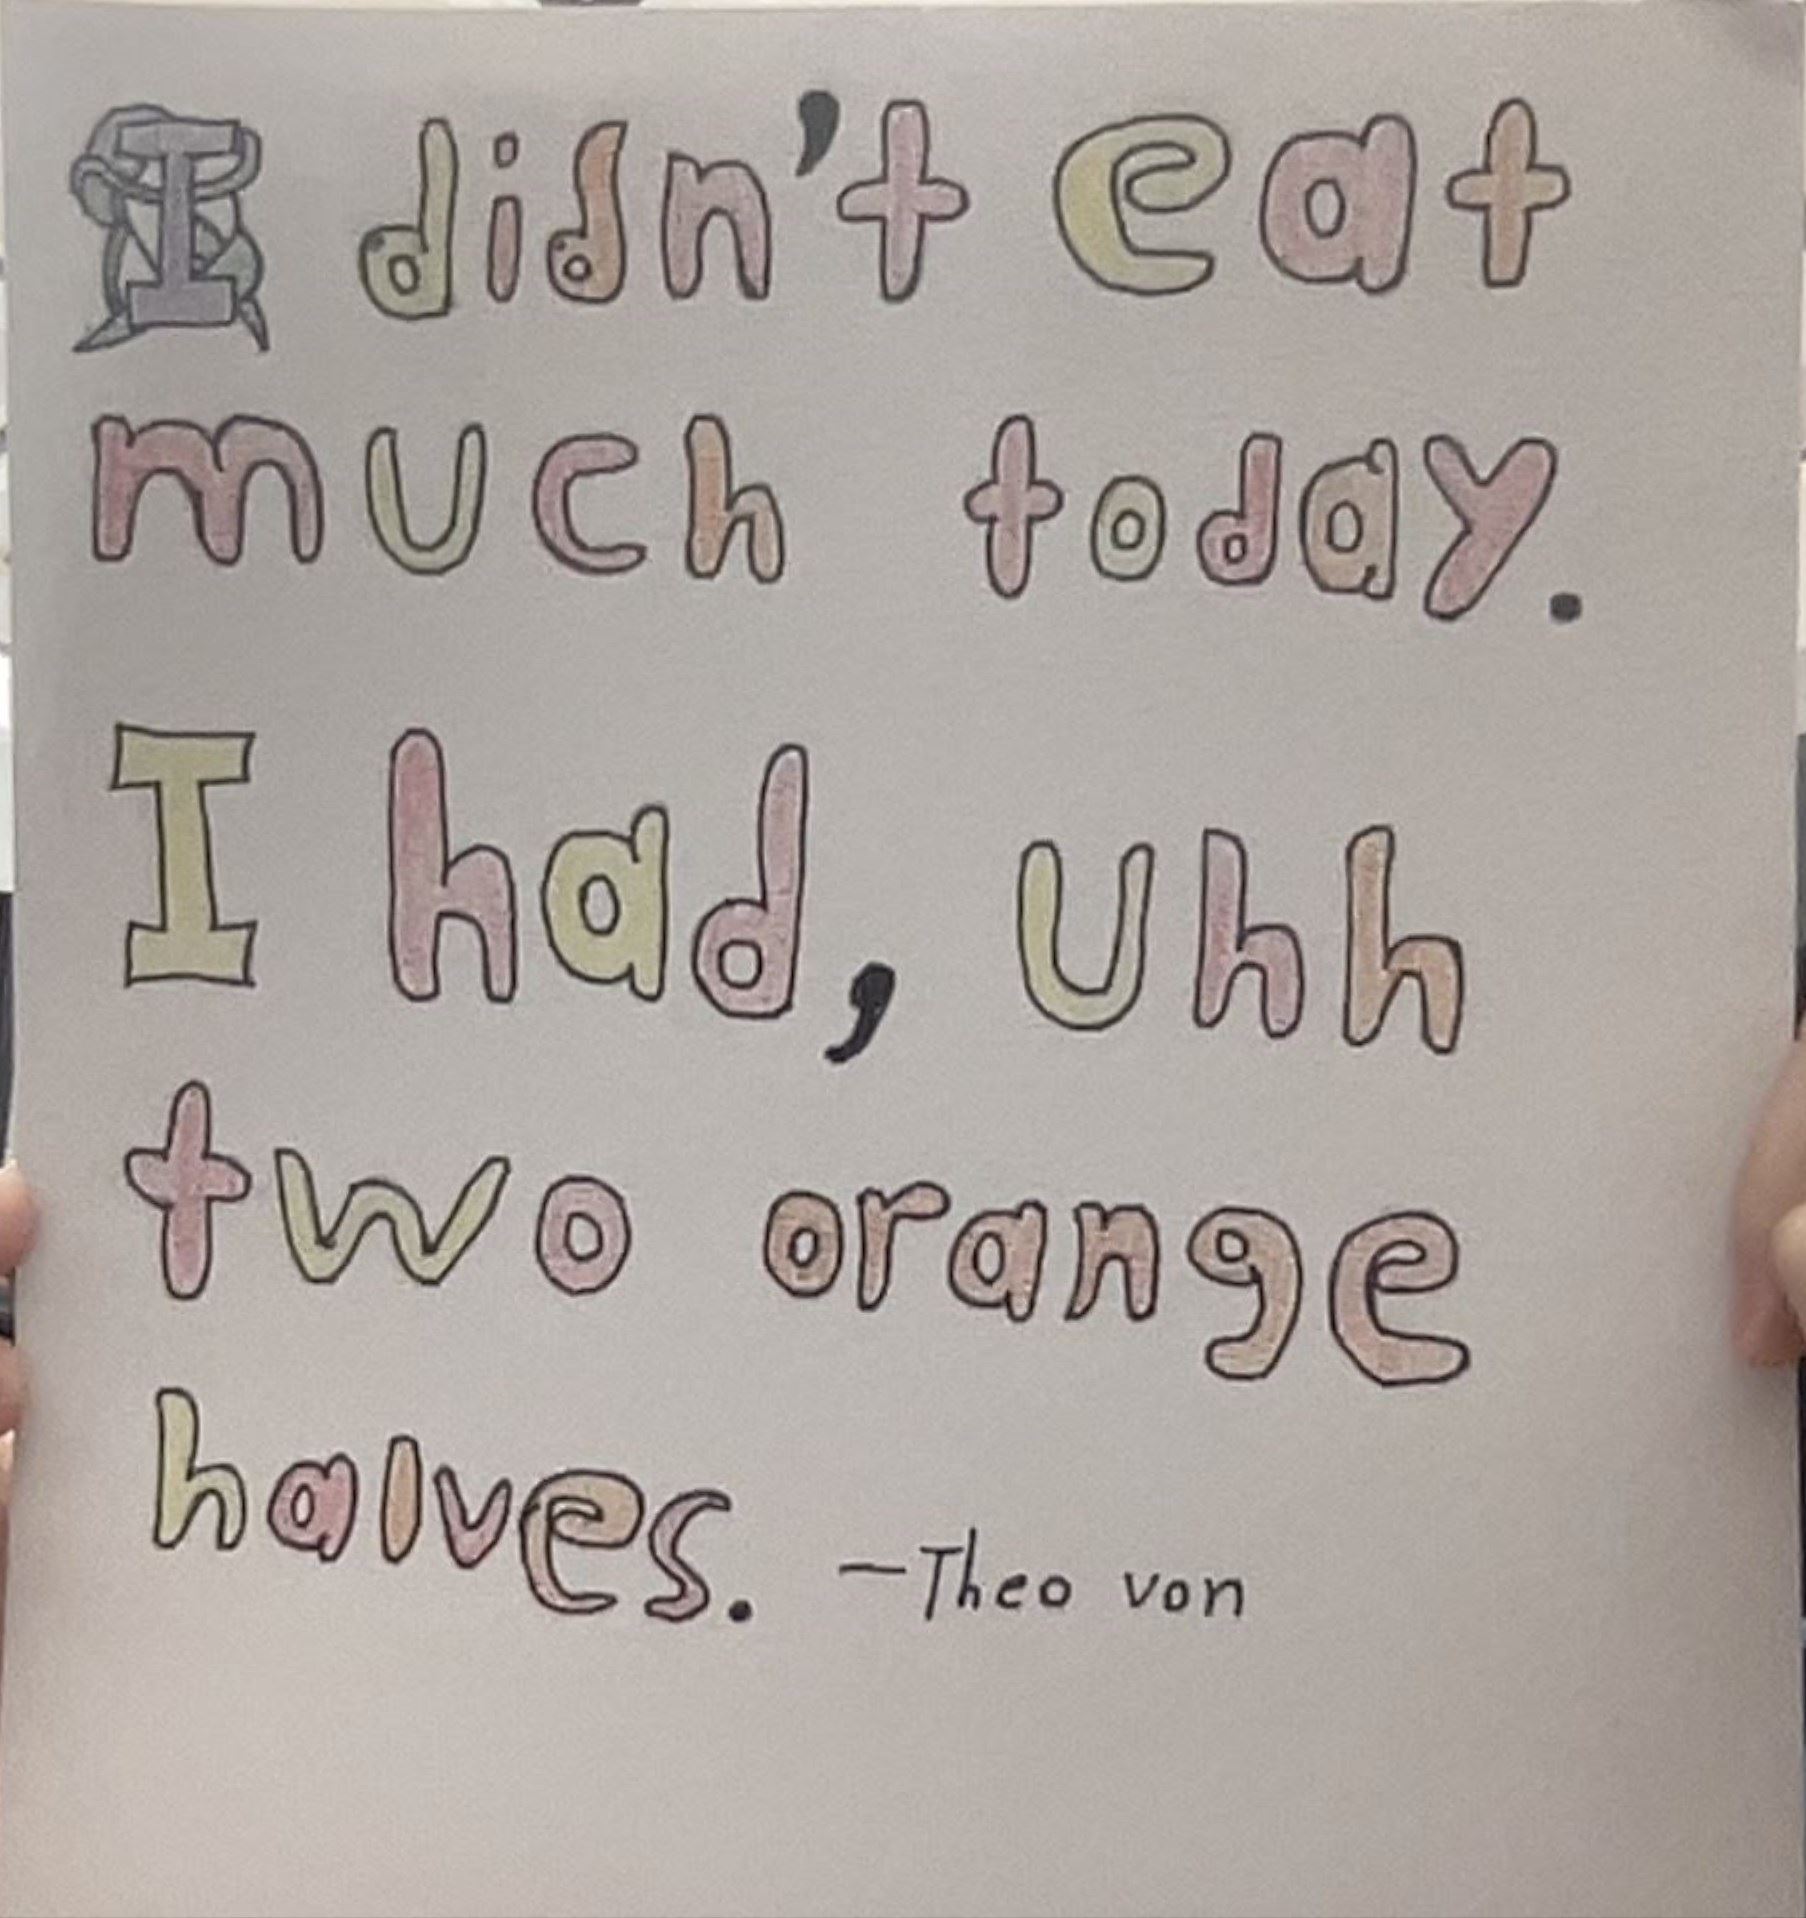 I didn't eat
much today.
I had, uhh
two orange
halves. -Theo von